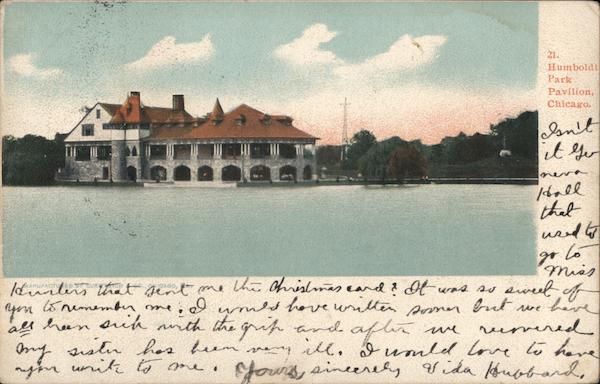 21.
Humboldt
Park
Pavilion,
Chicago.
Isn't
it Ge
neva
Hall
that
used to
go to
Miss
Hunters that sent me the Christmas card? It was so sweet of
you to remember me. I would have written sooner but we have
all been sick with the grip and after we recovered
my sister has been very ill. I would love to have
you write to me. Yours sincerely Vida Hubbard.